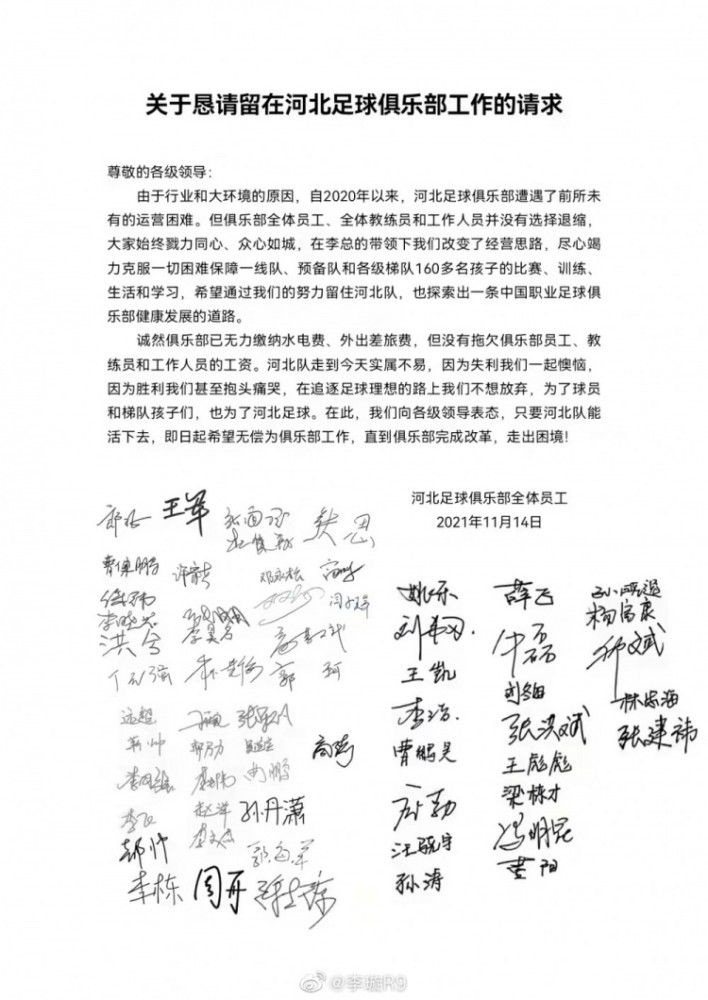 关于恳请留在河北足球俱乐部工作的请求
尊敬的各级领导:
由于行业和大环境的原因，自2020年以来，河北足球俱乐部遭遇了前所未
有的运营困难。但俱乐部全体员工、全体教练员和工作人员并没有选择退缩，
大家始终戮力同心、众心如城，在李总的带领下我们改变了经营思路，尽心竭
力克服一切困难保障一线队、预备队和各级梯队160多名孩子的比赛、训练、
生活和学习，希望通过我们的努力留住河北队，也探索出一条中国职业足球俱
乐部健康发展的道路。
诚然俱乐部已无力缴纳水电费、外出差旅费，但没有拖欠俱乐部员工、教
练员和工作人员的工资。河北队走到今天实属不易，因为失利我们一起懊恼，
因为胜利我们甚至抱头痛哭，在追逐足球理想的路上我们不想放弃，为了球员
和梯队孩子们，也为了河北足球。在此，我们向各级领导表态，只要河北队能
活下去，即日起希望无偿为俱乐部工作，直到俱乐部完成改革，走出困境!
河北足球俱乐部全体员工
2021年11月14日
王军
姚乐 薛飞
杨富康
王凯
李浩
张洪斌
林忠海
张建祎
曹鹏昊
王彪彪
梁栋才
高磊
孙丹潇
冯明昆
孙涛
李栋 周开
@李璇R9